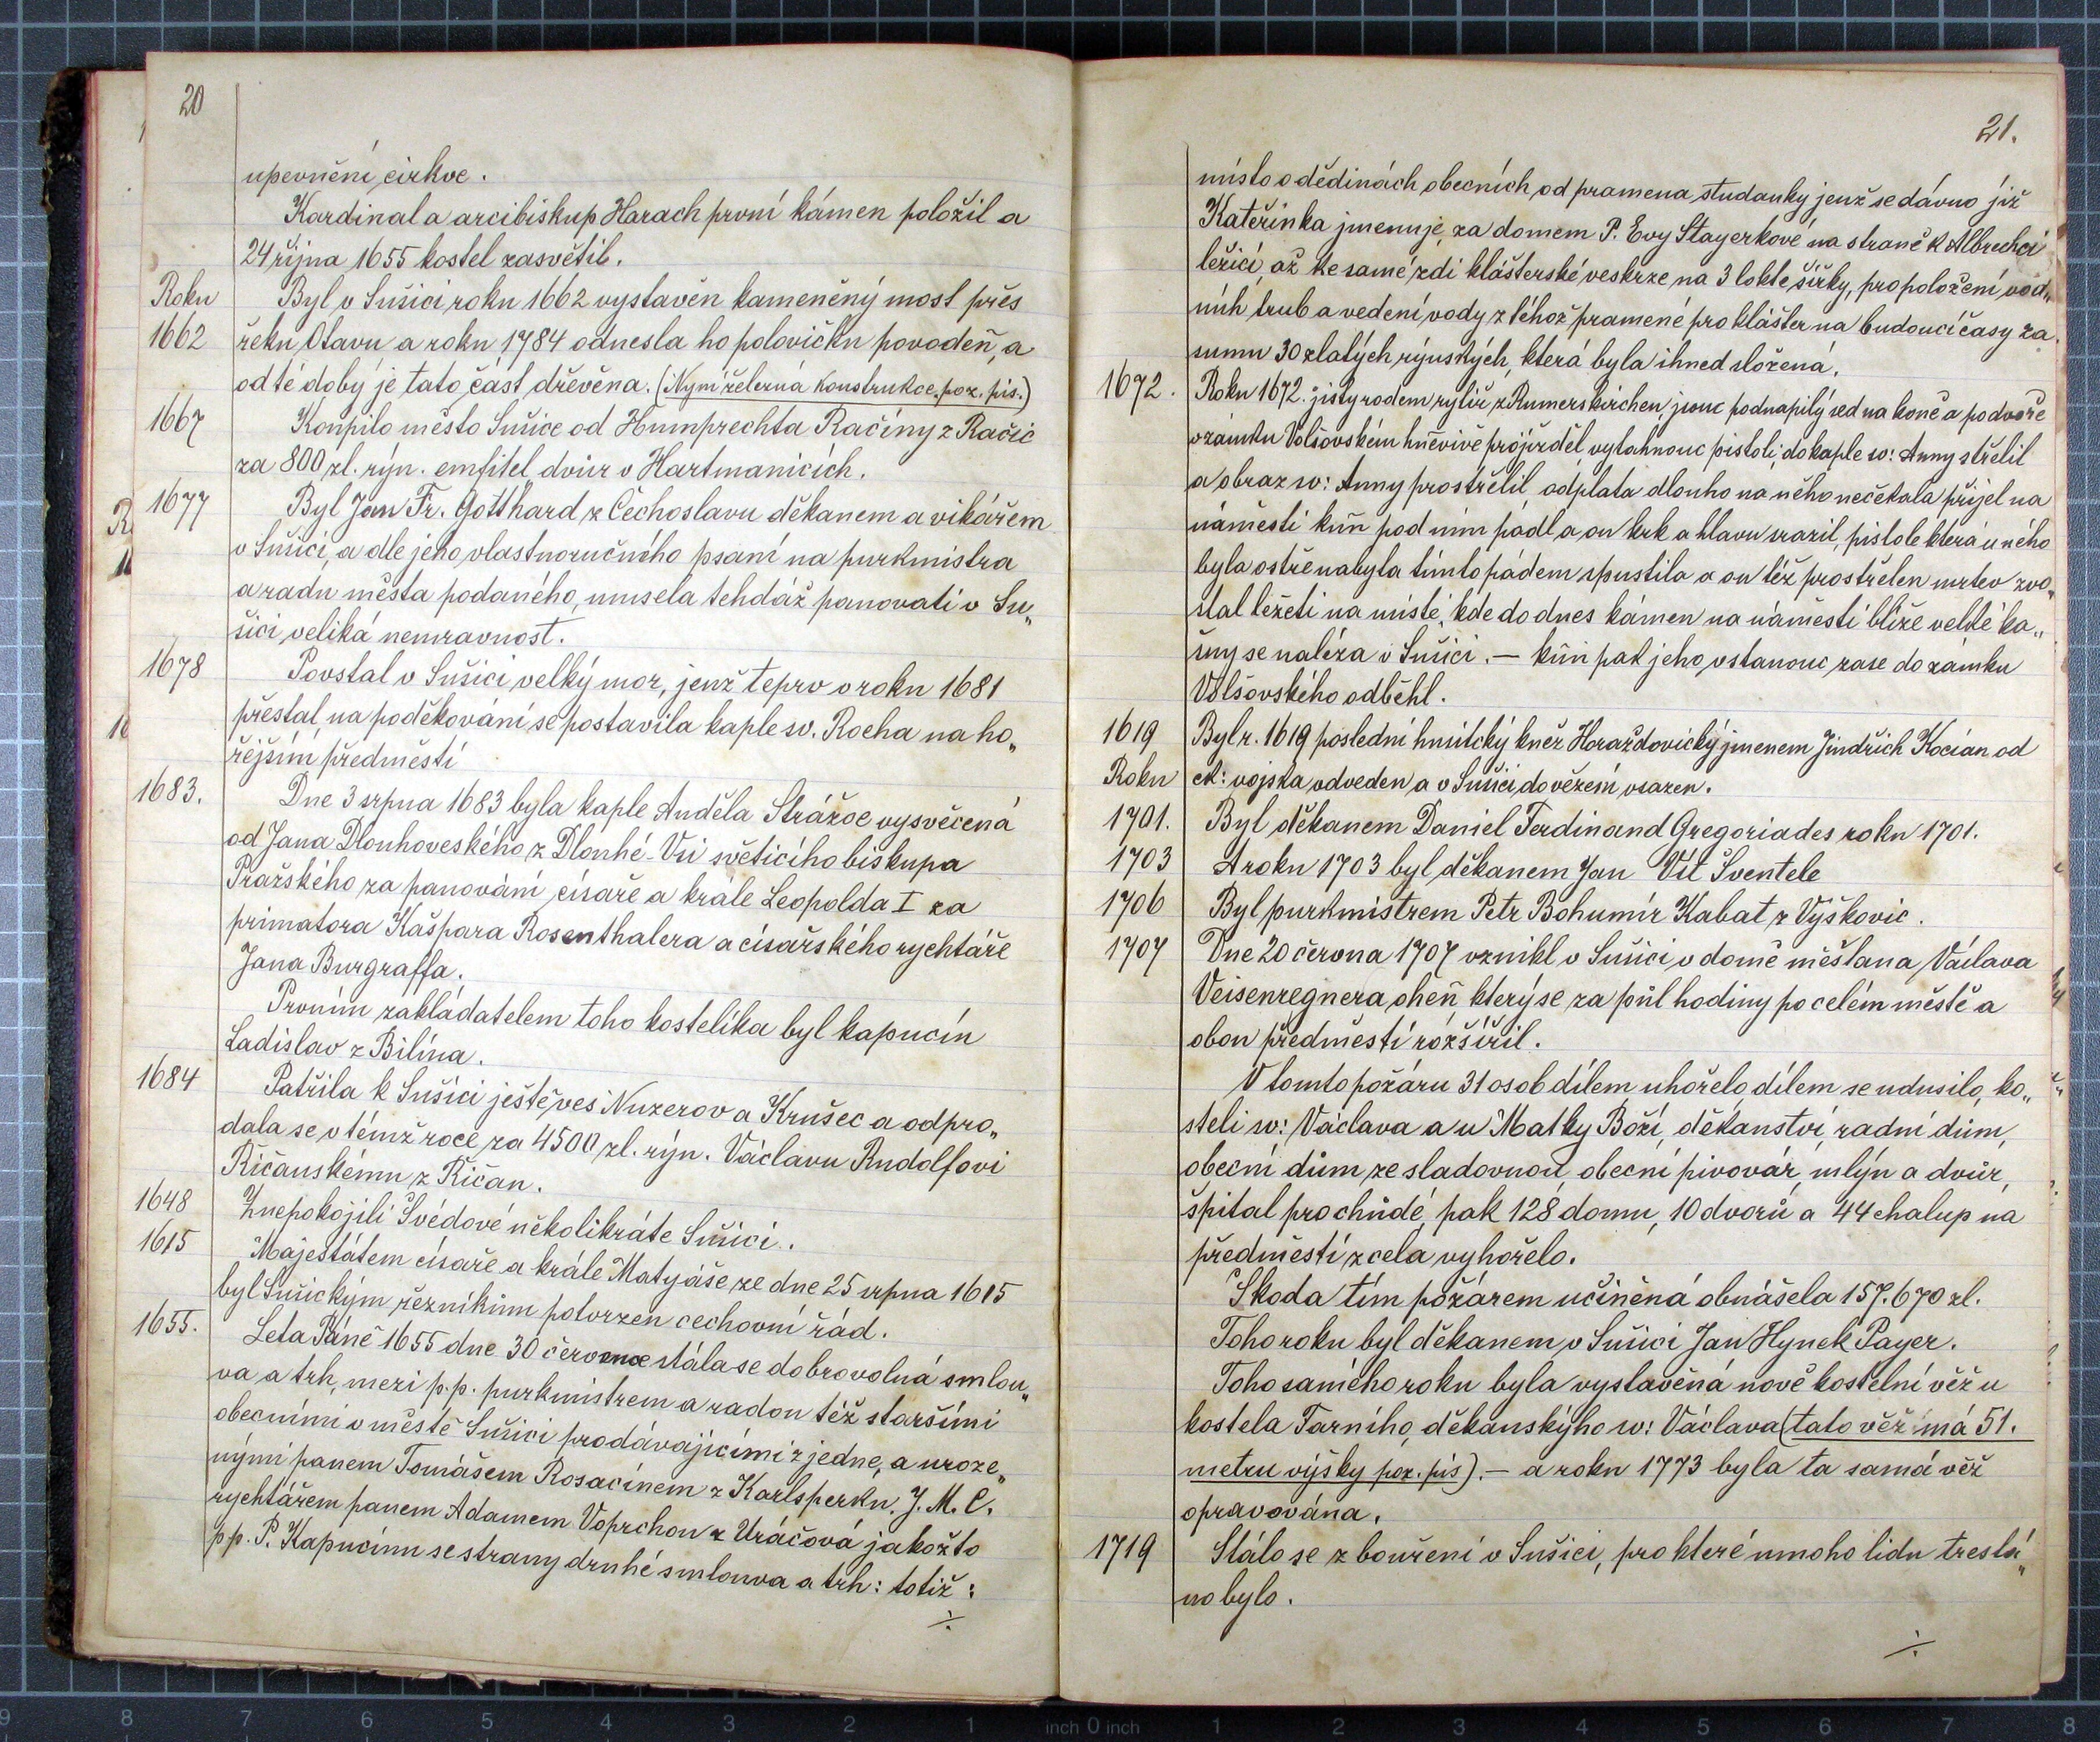 20
upevnění církve.
Kardinal a arcibiskup Harach první kámen položil a
24 října 1655 kostel zasvětil.
Roku Byl v Sušici roku 1662 vystavěn kameněný most přes
1662 řeku Otavu a roku 1784 odnesla ho polovičku povodeň, a
od té doby je tato část dřevěna. (Nyní železná konstrukce. poz. pis.)
1667 Koupilo město Sušice od Humprechta Račiny z Račic
za 800 zl. rýn. emfitel dvůr v Hartmanicích.
1677 Byl Jan Fr. Gotthard z Čechoslavu děkanem a vikářem
v Sušici, a dle jeho vlastnoručního psaní na purkmistra
a radu města podaného, musela tehdáž panovati v Su„
šici veliká nemravnost.
1678 Povstal v Sušici velký mor, jenž teprv v roku 1681
přestal, na poděkování se postavila kaple sv. Rocha na ho„
řejším předměstí
1683. Dne 3 srpna 1683 byla kaple Anděla Strážce vysvěcená
od Jana Dlouhoveského z Dlouhé-Vsi světicího biskupa
Pražského za panování císaře a krále Leopolda I za
primatora Kašpara Rosenthalera a císařského rychtáře
Jana Burgraffa.
Prvním zakládatelem toho kostelíka byl kapucín
Ladislav z Bilína.
1684 Patřila k Sušici ještě ves Nuzerov a Krušec a odpro„
dala se v témž roce za 4500 zl. rýn. Václavu Rudolfovi
Říčanskému z Říčan.
1648 Znepokojili Švédové několikráte Sušici.
1615 Majestátem císaře a krále Matyáše ze dne 25 srpna 1615
byl Sušickým řezníkům potvrzen cechovní řád.
1655. Leta Páně 1655 dne 30 července stála se dobrovolná smlou„
va a trh, mezi p.p. purkmistrem a radou též staršími
obecními v městě Sušici prodávajícími z jedne, a uroze„
nými panem Tomášem Rosacínem z Karlsperku. J. M. C.
rychtářem panem Adamem Voprchou z Uráčová jakožto
pp. P. Kapucínu se strany druhé smlouva a trh: totiž:
÷
21.
místo o dědinách obecních, od pramena studanky jenž se dávno již
Kateřinka jmenuje, za domem P. Evy Stayerkové na straně k Albrechci
ležící, až ke samé zdi klášterské veskrze na 3 lokte šířky, pro položení vod„
ních trub a vedení vody z téhož pramené pro klášter na budoucí časy za
sumu 30 zlatých rýnských, která byla ihned složená.
1672. Roku 1672. jistý rodem rytíř z Rumerskirchen, jsouc podnapilý sed na koně a po dvoře
v zámku Volšovském hněvivě projížděl vytahnouc pistoli, do kaple sv: Anny střelil
a obraz sv: Anny prostřelil, odplata dlouho na něho nečekala přijel na
náměstí kůň pod ním pádl a on krk a hlavu srazil, pistole která u něho
byla ostře nabyla tímto pádem spustila a on též prostřelen mrtev zvo„
stal ležeti na místě, kde do dnes kámen na náměstí blíže velké ka„
šny se naléza v Sušici. — kůň pak jeho vstanouc zase do zámku
Volšovského odběhl.
1619 Byl r. 1619 poslední husitský kněz Horažďovický jmenem Jindřich Kocian od
Roku ck: vojska odveden a v Sušici do vězení vsazen.
1701. Byl děkanem Daniel Ferdinand Gregoriades roku 1701.
1703 A roku 1703 byl děkanem Jan Vít Šventele
1706 Byl purkmistrem Petr Bohumír Kabat z Výškovic.
1707 Dne 20 června 1707 vznikl v Sušici v domě měšťana Václava
Veisenregnera oheň který se za půl hodiny po celém městě a
obou předměstí rozšířil.
V tomto požáru 31 osob dílem uhořelo dílem se udusilo, ko„
steli sv: Václava a u Matky Boží, děkanství, radní dům,
obecní dům ze sladovnou, obecní pivovár, mlýn a dvůr,
špitál pro chudé, pak 128 domu, 10 dvorů a 44 chalup na
předměstí zcela vyhořelo.
Škoda tím požárem učiněná obnášela 157.670 zl.
Toho roku byl děkanem v Sušici Jan Hynek Payer.
Toho samého roku byla vystavěná nově kostelní věž u
kostela Farního, děkanskýho sv: Václava (tato věž má 51.
metru výšky poz. pis). — a roku 1773 byla ta samá věž
opravována.
1719 Stálo se zbouření v Sušici, pro které mnoho lidu trestá„
no bylo.
÷
9 8 7 6 5 4 3 2 1 inch 0 inch 1 2 3 4 5 6 7 8